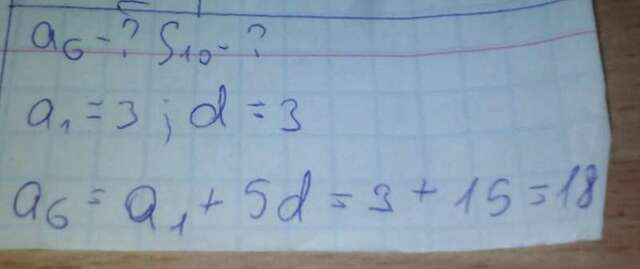 a₆ - ? S₁₀ - ?
a₁ = 3 ; d = 3
a₆ = a₁ + 5d = 3 + 15 = 18